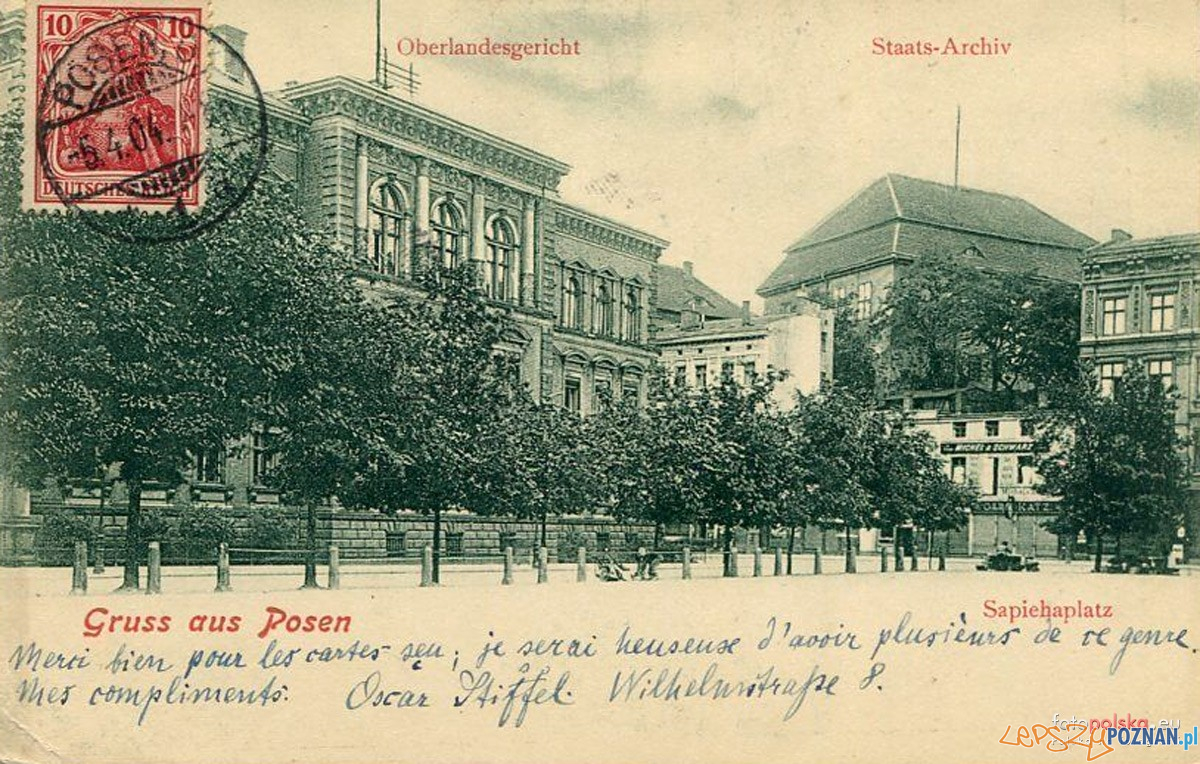 10 10
POSEN
-5.4.04.
DEUTSCHES REICH
Oberlandesgericht
Staats-Archiv
MICHEL & SCHWARZ
Gruss aus Posen
Sapiehaplatz
Merci bien pour les cartes ; je serai heuseuse d'avoir plusièurs de ce genre.
Mes compliments. Oscar Stiffel. Wilhelmstraße 8.
fotopolska.eu
LEPSZY POZNAN.pl